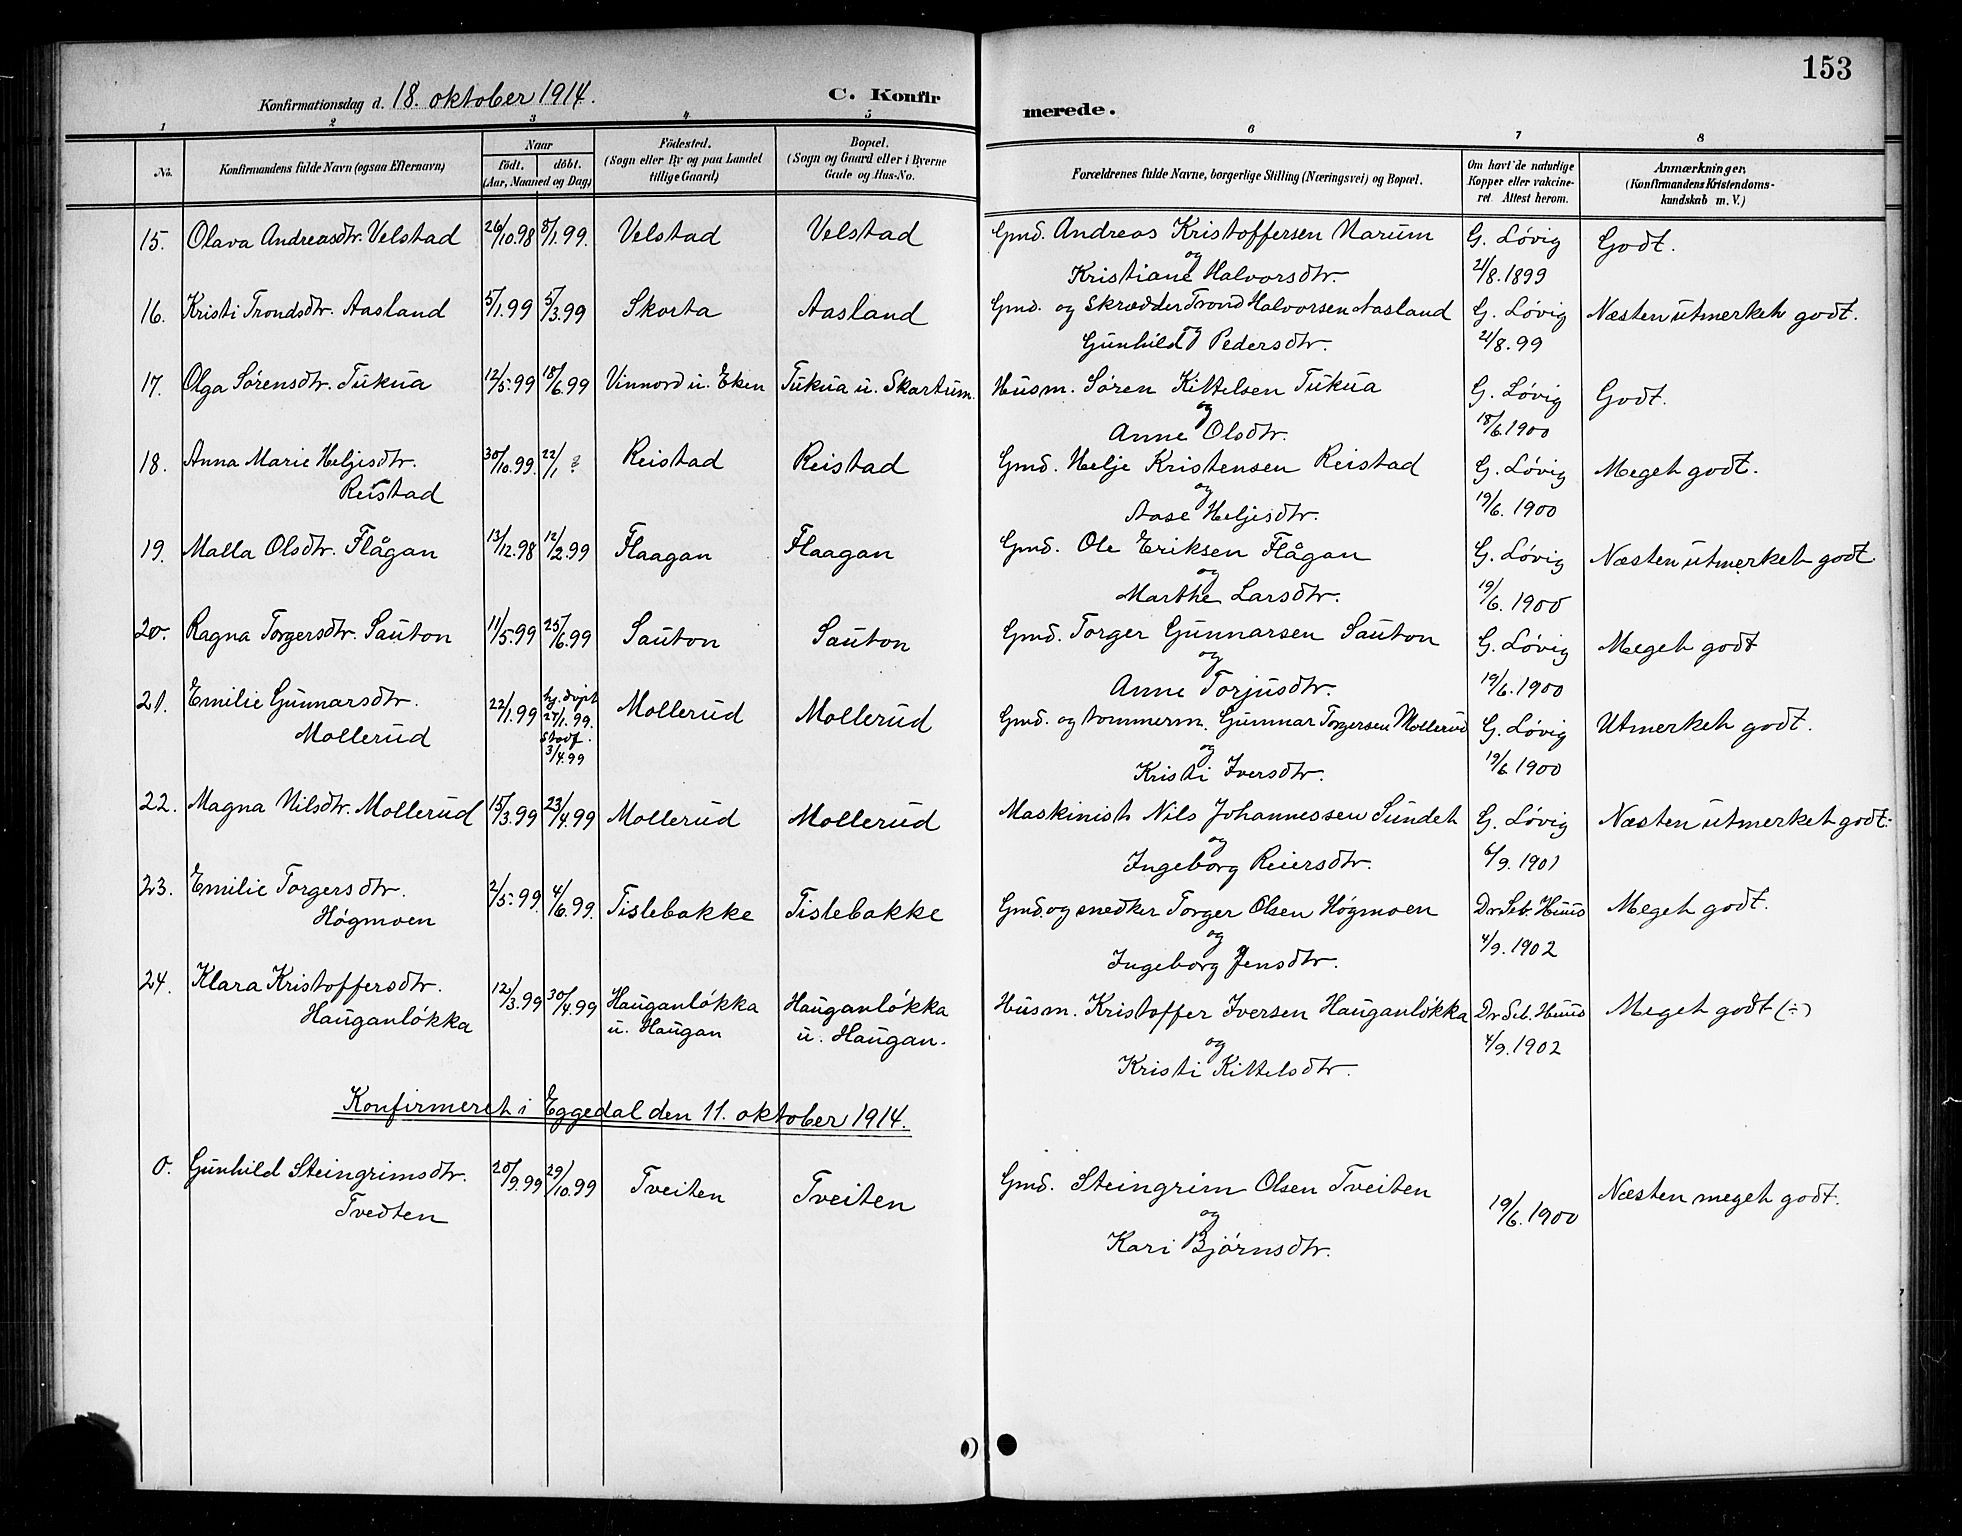 153
Konfirmationsdag d. 18. oktober 1914. C. Konfir merede.
1 2 3 4 5 6 7 8
No. Konfirmandens fulde Navn (ogsaa Efternavn) Naar födt. döbt. (Aar, Maaned og Dag) Födested. (Sogn eller By og paa Landet tillige Gaard) Bopæl. (Sogn og Gaard eller i Byerne Gade og Hus-No. Forældrenes fulde Navne, borgerlige Stilling (Næringsvei) og Bopæl. Om havt de naturlige Kopper eller vakcineret. Attest herom. Anmærkninger, (Konfirmandens Kristendomskundskab m. V.)
15. Olava Andreasdtr. Velstad 26/10.98 8/1.99. Velstad Velstad Gmd. Andreas Kristoffersen Narum G. Løvig Godt.
og
Kristiane Halvorsdtr. 21/8.1899
16. Kristi Trondsdtr. Aasland 5/1.99 5/3.99 Skorta Aasland Gmd. og Skrædder Trond Halvorsen Aasland G. Løvig Næsten utmerket godt.
og
Gunhild Pedersdtr. 21/8.99
17. Olga Sørensdtr. Tukua 12/5.99 18/6.99 Vinnord u. Eken Tukua u. Skartum. Husm. Søren Kittelsen Tukua G. Løvig Godt.
og
Anne Olsdtr. 18/6.1900
18. Anna Marie Heljesdtr. 30/10.99. 22/1 ? Reistad Reistad Gmd. Helje Kristensen Reistad G. Løvig Meget godt.
Reistad og
Aase Heljesdtr. 19/6.1900
19. Malla Olsdtr. Flågan 13/12.98 12/2.99 Flaagan Flaagan Gmd. Ole Eriksen Flågan G. Løvig Næsten utmerket godt
og
Marthe Larsdtr. 19/6.1900
20. Ragna Torgersdtr. Sauton 11/5.99 25/6.99 Sauton Sauton Gmd. Torger Gunnarsen Sauton G. Løvig Meget godt
og
Anne Torjusdtr. 19/6.1900
21. Emilie Gunnarsdtr. 22/1.99 hj. døpt 27/1.99. Stadf. 3/4.99 Mollerud Mollerud Gmd. og tommerm. Gunnar Torgersen Mollerud G. Løvig Utmerket godt.
Mollerud og
Kristi Iversdtr. 19/6.1900
22. Magna Nilsdtr. Mollerud 15/3.99 23/4.99 Mollerud Mollerud Maskinist Nils Johannessen Sundet G. Løvig Næsten utmerket godt.
og
Ingeborg Reiersdtr. 6/9.1901
23. Emilie Torgersdtr. 2/5.99. 4/6.99. Tislebakke Tislebakke Gmd. og snedker Torger Olsen Høgmoen Dr Seb. Huus Meget godt.
Høgmoen og
Ingeborg Jensdtr. 4/9.1902
24. Klara Kristoffersdtr. 12/3.99 30/4.99 Hauganløkka Hauganløkka Husm. Kristoffer Iversen Hauganløkka Dr Seb. Huus Meget godt (÷)
Hauganløkka u. Haugan u. Haugan. og 4/9.1902
Kristi Kittelsdtr.
Konfirmeret i Eggedal den 11. oktober 1914.
0. Gunhild Steingrimsdtr. 20/9.99 29/10.99 Tveiten Tveiten Gmd. Steingrim Olsen Tveiten 19/6.1900 Næsten meget godt.
Tvedten og
Kari Bjørnsdtr.